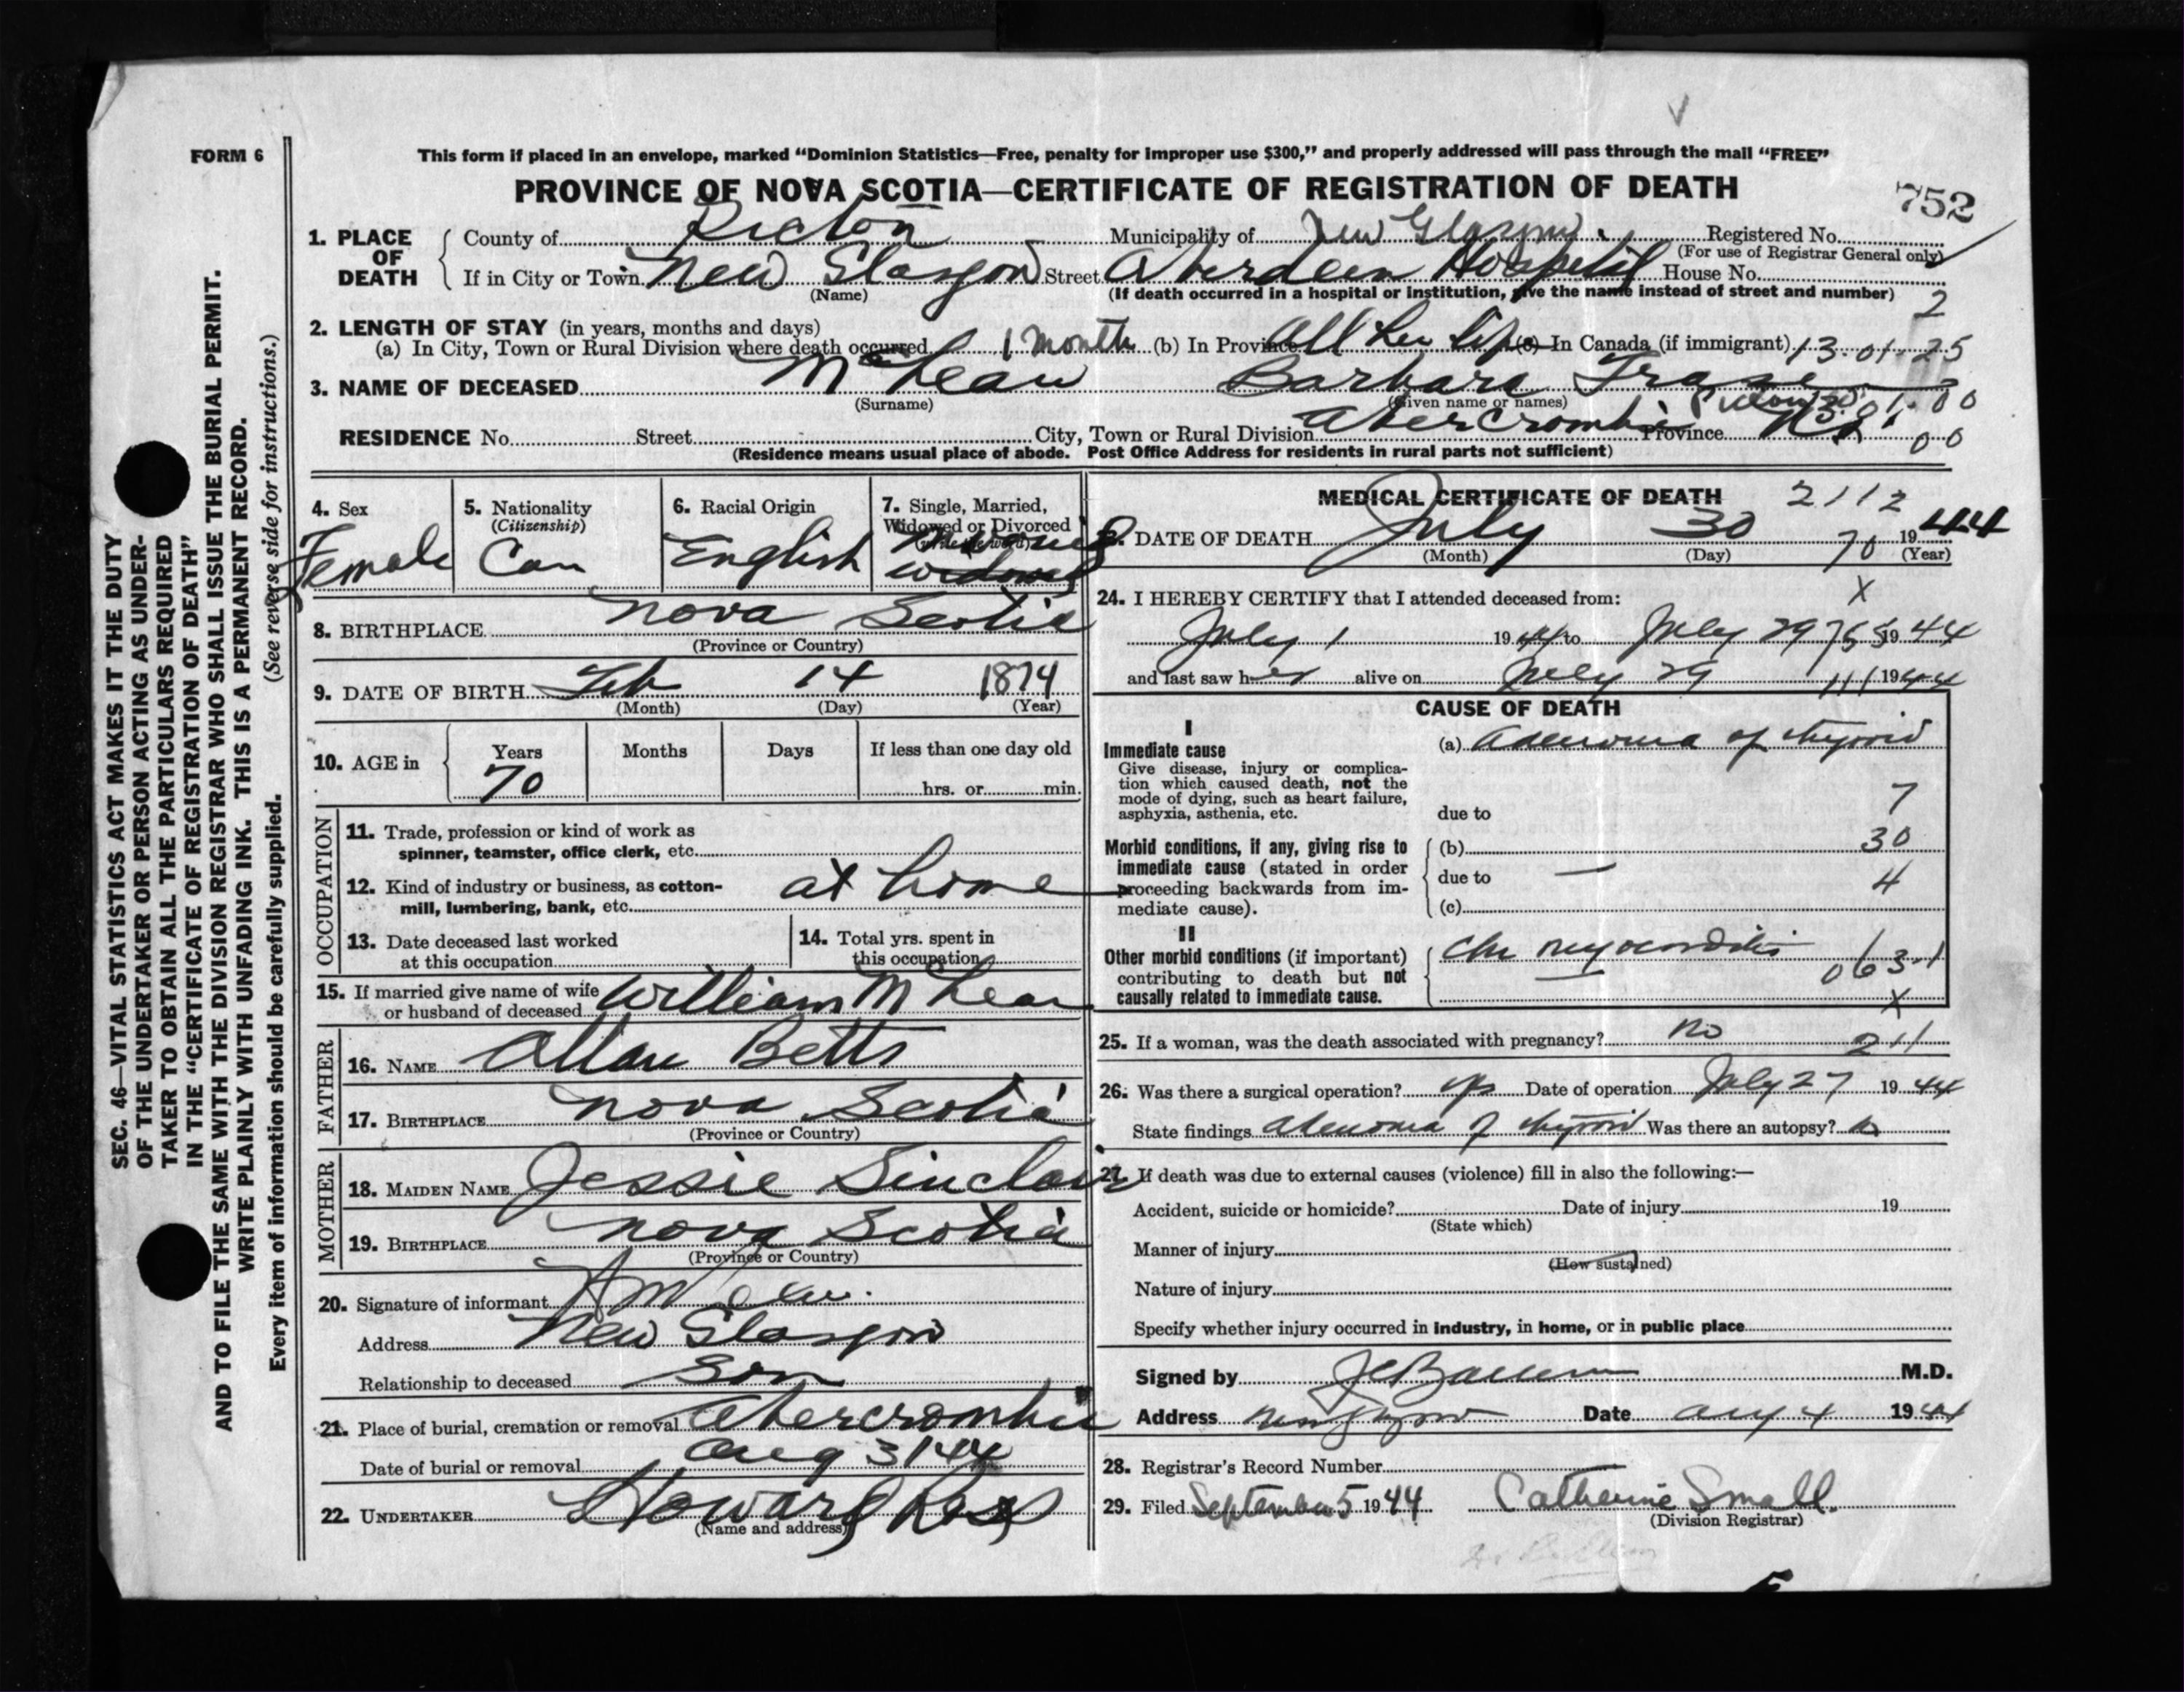 FORM 6
This form if placed in an envelope, marked “Dominion Statistics—Free, penalty for improper use $300,” and properly addressed will pass through the mail “FREE”
PROVINCE OF NOVA SCOTIA—CERTIFICATE OF REGISTRATION OF DEATH
752
1. PLACE OF DEATH County of Pictou Municipality of New Glasgow Registered No.
(For use of Registrar General only)
If in City or Town New Glasgow Street Aberdeen Hospital House No.
(Name) (If death occurred in a hospital or institution, give the name instead of street and number) 2
2. LENGTH OF STAY (in years, months and days)
(a) In City, Town or Rural Division where death occurred 1 Month (b) In Province All her life (c) In Canada (if immigrant) 13.01.25
3. NAME OF DECEASED McLean Barbara
(Surname) (Given name or names)
RESIDENCE No. Street City, Town or Rural Division Abercrombie Province N.S. 00
(Residence means usual place of abode. Post Office Address for residents in rural parts not sufficient)
4. Sex Female
5. Nationality (Citizenship) Can
6. Racial Origin English
7. Single, Married, Widowed or Divorced (write the word) Married widowed
8. BIRTHPLACE Nova Scotia
(Province or Country)
9. DATE OF BIRTH Feb 14 1874
(Month) (Day) (Year)
10. AGE in Years Months Days If less than one day old
70 hrs. or min.
OCCUPATION
11. Trade, profession or kind of work as spinner, teamster, office clerk, etc.
12. Kind of industry or business, as cotton-mill, lumbering, bank, etc. at home
13. Date deceased last worked at this occupation
14. Total yrs. spent in this occupation
15. If married give name of wife or husband of deceased William McLean
FATHER
16. NAME Allan Betts
17. BIRTHPLACE Nova Scotia
(Province or Country)
MOTHER
18. MAIDEN NAME Jessie Sinclair
19. BIRTHPLACE Nova Scotia
(Province or Country)
20. Signature of informant
Address New Glasgow
Relationship to deceased Son
21. Place of burial, cremation or removal Abercrombie
Date of burial or removal Aug 3/44
22. UNDERTAKER Howard
(Name and address)
MEDICAL CERTIFICATE OF DEATH 2112
DATE OF DEATH July 30 1944
(Month) (Day) 70 (Year)
24. I HEREBY CERTIFY that I attended deceased from: X
July 1 1944 to July 29 1944
and last saw her alive on July 29 1944
CAUSE OF DEATH
I
Immediate cause (a) Adenoma of thyroid
Give disease, injury or complication which caused death, not the mode of dying, such as heart failure, asphyxia, asthenia, etc.
7
due to
30
Morbid conditions, if any, giving rise to immediate cause (stated in order proceeding backwards from immediate cause).
(b)
due to — 4
(c)
II
Other morbid conditions (if important) contributing to death but not causally related to immediate cause.
Chr myocarditis 063-1
X
25. If a woman, was the death associated with pregnancy? no 211
26. Was there a surgical operation? yes Date of operation July 27 1944
State findings Adenoma of thyroid Was there an autopsy? no
27. If death was due to external causes (violence) fill in also the following:—
Accident, suicide or homicide? Date of injury 19
(State which)
Manner of injury
(How sustained)
Nature of injury
Specify whether injury occurred in industry, in home, or in public place
Signed by M.D.
Address New Glasgow Date Aug 4 1944
28. Registrar's Record Number
29. Filed September 5 1944 Catherine Small.
(Division Registrar)
SEC. 46—VITAL STATISTICS ACT MAKES IT THE DUTY
OF THE UNDERTAKER OR PERSON ACTING AS UNDER-
TAKER TO OBTAIN ALL THE PARTICULARS REQUIRED
IN THE “CERTIFICATE OF REGISTRATION OF DEATH”
AND TO FILE THE SAME WITH THE DIVISION REGISTRAR WHO SHALL ISSUE THE BURIAL PERMIT.
WRITE PLAINLY WITH UNFADING INK. THIS IS A PERMANENT RECORD.
Every item of information should be carefully supplied. (See reverse side for instructions.)